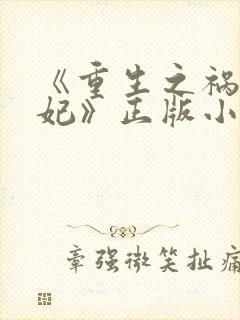 《重生之祸
妃》正版小
章强微笑扯痛